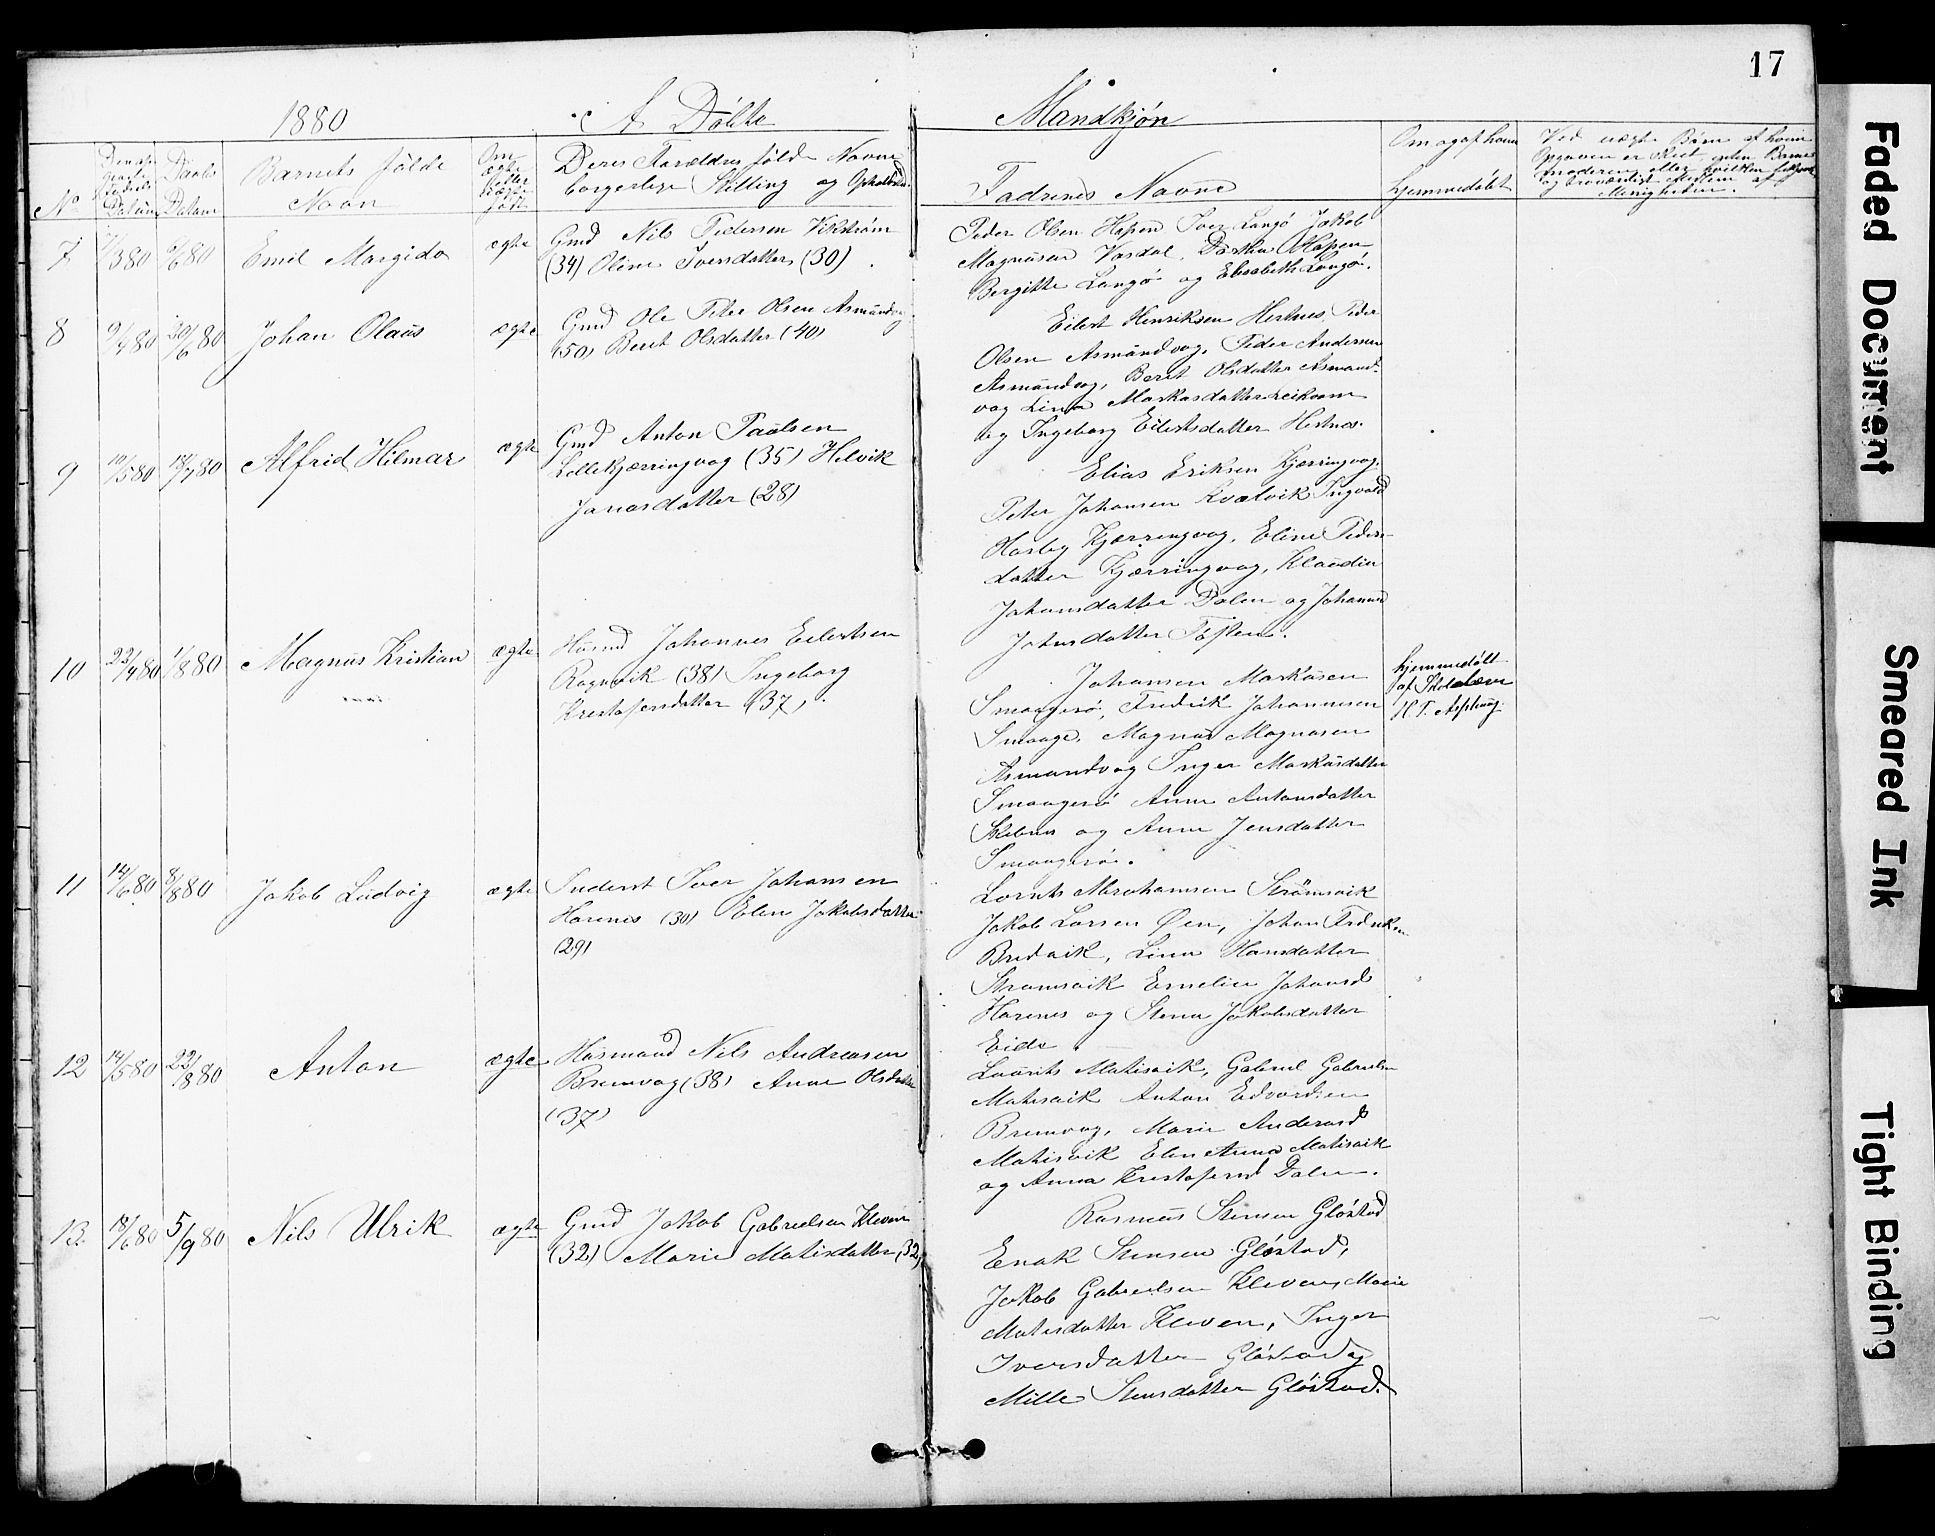 17
1880 A Døbte Mandkjøn
No
Datum
Daabs
Datum
Barnets fulde
Navn
Om
ægte
eller
uægte
født
Deres Forældres fulde Navne
borgerlige Stilling og Opholdssted
Fadrenes Navne
Om og af hvem
hjemmedøbt
Ved uægte Børn af hvem
Opgaven er
7 /3 80 /6 80 Emil Margido ægte
Gmd Nils Pedersen Vikstrøm
(34) Oline Iversdatter (30)
Peder Olsen Hapen Iver Langø Jakob
Magnusen Vasdal, Dorthea Hapen
Bergitte Langø og Elisabeth Langø.
8 9/4 80 20/6 80 Johan Olaus ægte
Gmd Ole Peter Olsen Asmundvag
(50) Berit Olsdatter (40)
Eilert Henriksen Hestnes, Peder
Olsen Asmundvag, Peder Andersen
Asmundvag, Berit Olsdatter Asmund-
vag Lina Markusdatter
og Ingeborg Eilertsdatter Hestnes.
9 10/5 80 18/7 80 Alfrid Hilmar ægte
Gmd Anton Paulsen
Lillekjærringvag (35) Helvik
Jonasdatter (28)
Elias Eriksen Kjærringvag,
Peter Johansen Kvalvik Ingvald
Hasby Kjærringvag, Eline Peders-
datter Kjærringvag, Klaudia
Johansdatter Dalen og Johanna
Johnsdatter Tøften.
10 23/4 80 1/8 80 Magnus Kristian ægte
Husmd Johannes Eilertsen
Ragnvik (38) Ingeborg
Kristofersdatter (37)
Johansen Markusen
Smaagesø, Fredrik Johannesen
Smaage, Magnus Magnusen
Asmundvag Inger Markusdatter
Smaagesø Anne Antonsdatter
og Anne Jensdatter
Smaagesø.
hjemmedøbt
af Skolelærer
H. T. Asphaug
11 14/6 80 8/8 80 Jakob Ludvig ægte
Inderst Iver Johansen
Harenes (30) Elen Jakobsdatter
(29)
Lornts Abrahamsen Strømsvik
Jakob Larsen Øen, Johan Fredriksen
Bredvik, Lina Hansdatter
Strømsvik Emelie Johansd
Harenes og Stena Jakobsdatter
Eide
12 14/5 80 22/8 80 Anton ægte
Husmand Nils Andreasen
Bremvag (38) Anne Olsdatter
(37)
Laurits Matisvik, Gabriel Gabrielsen
Matisvik Anton Edvardsen
Bremvag, Marie Andersd
Matisvik Elen Anna Matisvik
og Anna Kristofersd Dalen.
13. 18/6 80 5/9 80 Nils Ulrik ægte
Gmd Jakob Gabrielsen Kleven
(32) Marie Matisdatter (32)
Rasmus Stensen Gløstad
Enok Stensen Gløstad,
Jakob Gabrielsen Kleven, Marie
Matisdatter Kleven, Inger
Iversdatter Gløstad og
Mille Stensdatter Gløstad.
Faded Document
Smeared Ink
Tight Binding